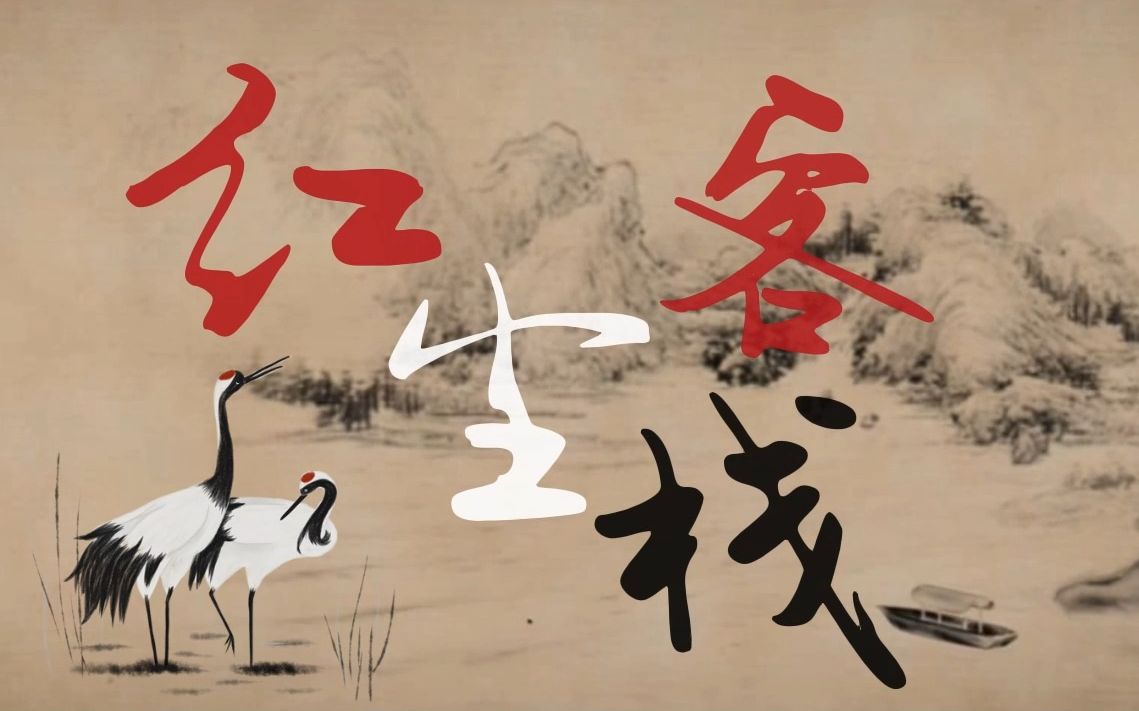 红尘客栈